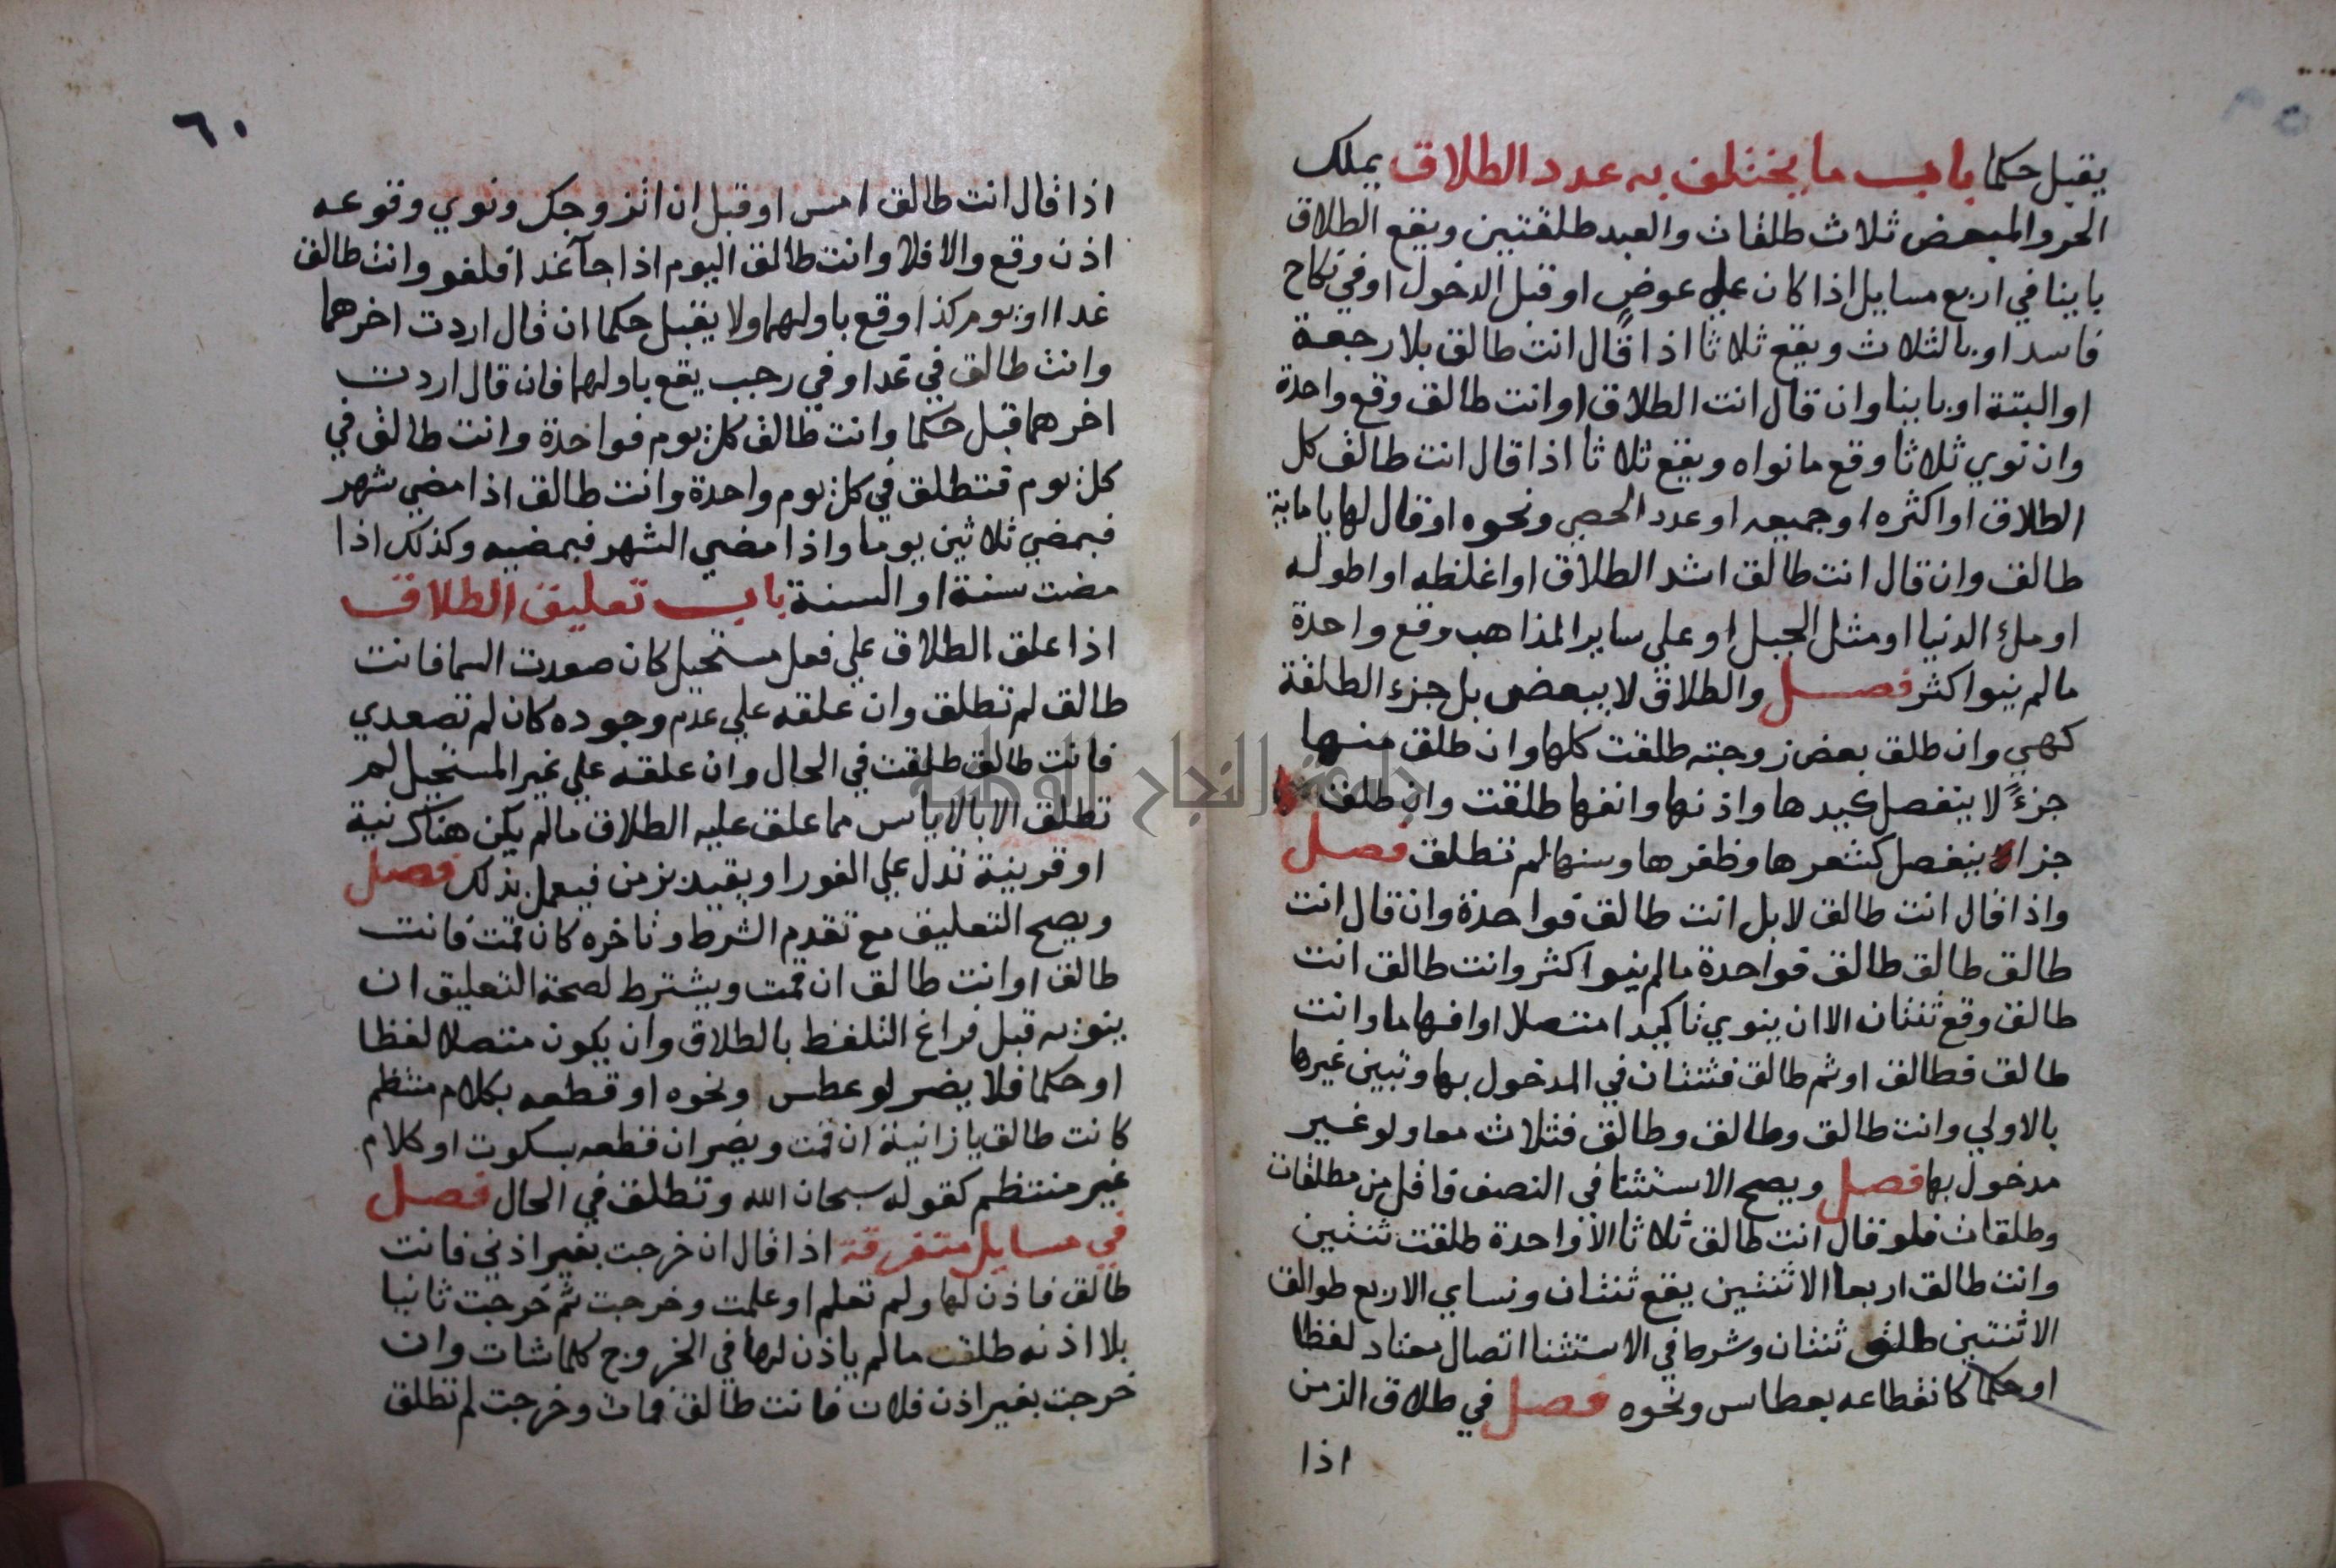 يقبل حكما باب ما يختلف به عدد الطلاق يملك
الحر والمبعض ثلاث طلقات والعبد طلقتين ويقع الطلاق
باينا في اربع مسايل اذا كان علي عوض او قبل الدخول او في نكاح
فاسد او بالثلاث ويقع ثلاثا اذا قال انت طالق بلا رجعة
او البتة او باينا وان قال انت الطلاق او انت طالق وقع واحدة
وان نوي ثلاثا وقع ما نواه ويقع ثلاثا اذا قال انت طالق كل
الطلاق او اكثره او جميعه او عدد الحصي ونحوه او قال لها يا ماية
طالق وان قال انت طالق اشد الطلاق او اغلظه او اطوله
او ملء الدنيا او مثل الجبل او علي ساير المذاهب وقع واحدة
ما لم ينوا كثر فصل والطلاق لا يبعض بل جزء الطلقة
كهي وان طلق بعض زوجته طلقت كلها وان طلق منها
جزءً لا ينفصل كيدها واذنها وانفها طلقت وان طلق
جزا ينفصل كشعرها وظفرها وسنها لم تطلق فصل
واذا قال انت طالق لا بل انت طالق فواحدة وان قال انت
طالق طالق طالق فواحدة ما لم ينوا كثر وانت طالق انت
طالق وقع ثنتان الا ان ينوي تاكيدا متصلا او افهاما وانت
طالق فطالق او ثم طالق فثنتان في المدخول بها وتبين غيرها
بالاولي وانت طالق وطالق وطالق فثلاث معا ولو غير
مدخول بها فصل ويصح الاستثنا في النصف فاقل من مطلقات
وطلقات فلو قال انت طالق ثلاثا الا واحدة طلقت ثنتين
وانت طالق اربعا الا ثنتين يقع ثنتان ونساي الاربع طوالق
الا ثنتين طلق ثنتان وشرط في الاستثنا اتصال معتاد لفظا
او حكما كانقطاعه بعطاس ونحوه فصل في طلاق الزمن
اذا
٦٠
اذا قال انت طالق امس او قبل ان اتزوجك ونوي وقوعه
اذن وقع والا فلا وانت طالق اليوم اذا جآ غدا فلغو وانت طالق
غدا او يوم كذا وقع باولهما ولا يقبل حكما ان قال اردت اخرهما
وانت طالق في غد او في رجب يقع باولهما فان قال اردت
اخرهما قبل حكما وانت طالق كل يوم فواحدة وانت طالق في
كل يوم فتطلق في كل يوم واحدة وانت طالق اذا مضي شهر
فبمضي ثلاثين يوما واذا مضي الشهر فبمضيه وكذلك اذا
مضت سنة او السنة باب تعليق الطلاق
اذا علق الطلاق علي فعل مستحيل كان صعدت السما فانت
طالق لم تطلق وان علقه علي عدم وجوده كان لم تصعدي
فانت طالق طلقت في الحال وان علقه علي غير المستحيل لم
تطلق الا بالاياس مما علق عليه الطلاق ما لم يكن هناك نية
او قرينة تدل علي الفور او يقيد بزمن فيعمل بذلك فصل
ويصح التعليق مع تقدم الشرط وتاخره كان قمت فانت
طالق او انت طالق ان قمت ويشترط لصحة التعليق ان
ينويه قبل فراغ التلفظ بالطلاق وان يكون متصلا لفظا
او حكما فلا يضر لو عطس ونحوه او قطعه بكلام منتظم
كانت طالق يا زانية ان قمت ويضر ان قطعه بسكوت او كلام
غير منتظم كقوله سبحان الله وتطلق في الحال فصل
في مسايل متفرقة اذا قال ان خرجت بغير اذني فانت
طالق فاذن لها ولم تعلم او علمت وخرجت ثم خرجت ثانيا
بلا اذنه طلقت ما لم ياذن لها في الخروج كلما شات وان
خرجت بغير اذن فلان فانت طالق فمات وخرجت لم تطلق
جامعة النجاح الوطنية